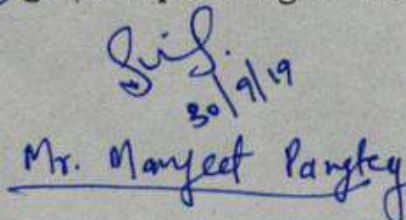 30/9/19
Mr. Manjeet Pangtey